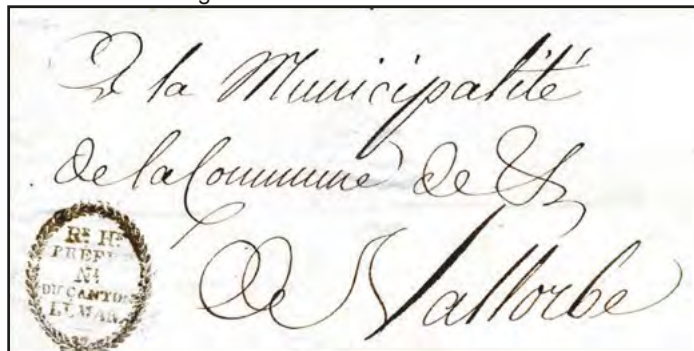 A la Municipalité
de la Commune de &
de Vallorbe
Re He
PREFE
Nal
DU CANTON
LEMAN